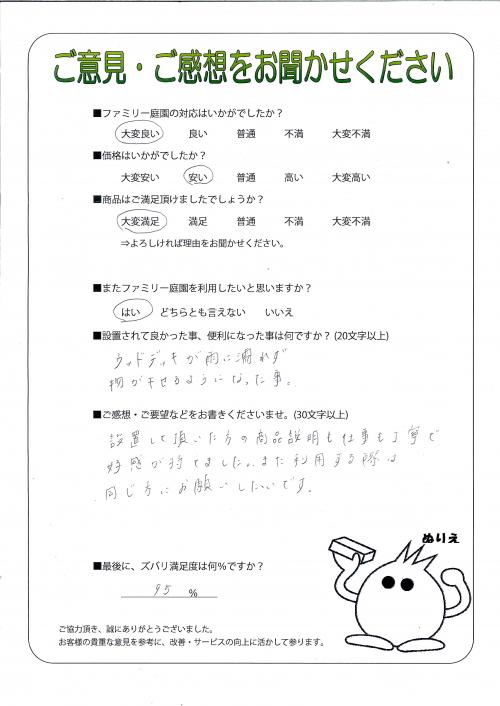 ご意見・ご感想をお聞かせください
■ファミリー庭園の対応はいかがでしたか？
大変良い 良い 普通 不満 大変不満
■価格はいかがでしたか？
大変安い 安い 普通 高い 大変高い
■商品はご満足頂けましたでしょうか？
大変満足 満足 普通 不満 大変不満
⇒よろしければ理由をお聞かせください。
■またファミリー庭園を利用したいと思いますか？
はい どちらとも言えない いいえ
■設置されて良かった事、便利になった事は何ですか？(20文字以上)
ウッドデッキが雨に濡れず
物が干せるようになった事。
■ご感想・ご要望などをお書きくださいませ。(30文字以上)
設置して頂いた方の商品説明も仕事も丁寧で
好感が持てました。また利用する際は
同じ方にお願いしたいです。
ぬりえ
■最後に、ズバリ満足度は何％ですか？
95 ％
ご協力頂き、誠にありがとうございました。
お客様の貴重な意見を参考に、改善・サービスの向上に活かして参ります。